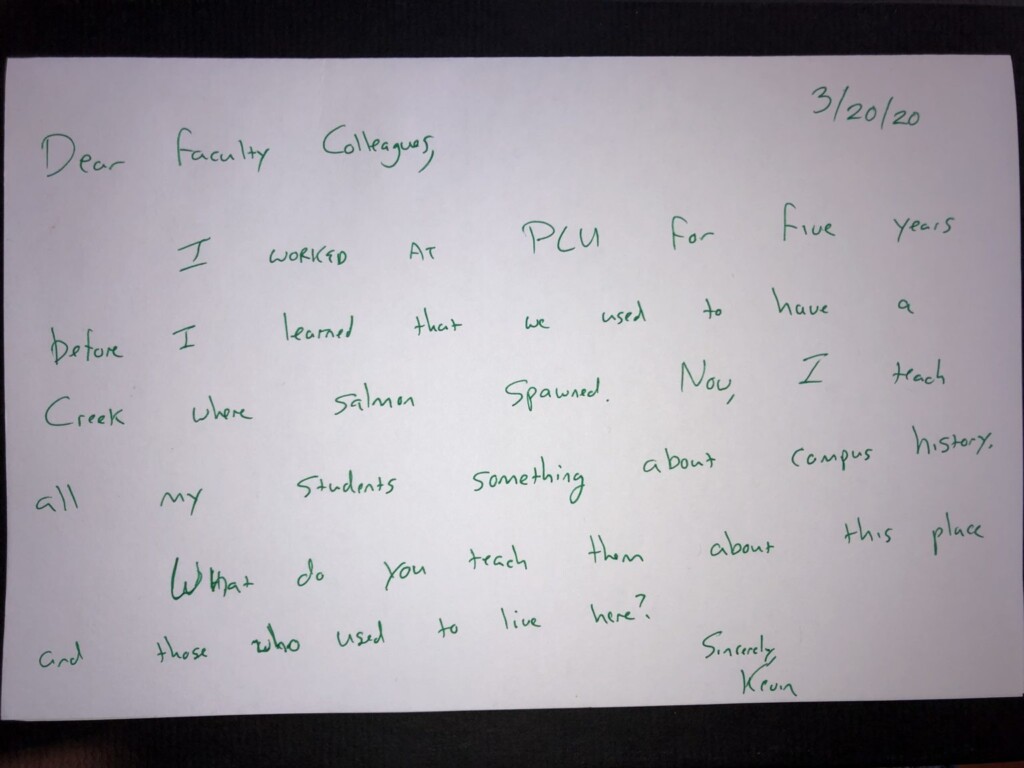 3/20/20
Dear Faculty Colleagues,
I WORKED AT PLU for five years
before I learned that we used to have a
Creek where salmon spawned. Now, I teach
all my students something about campus history.
What do you teach them about this place
and those who used to live here?
Sincerely,
Kevin